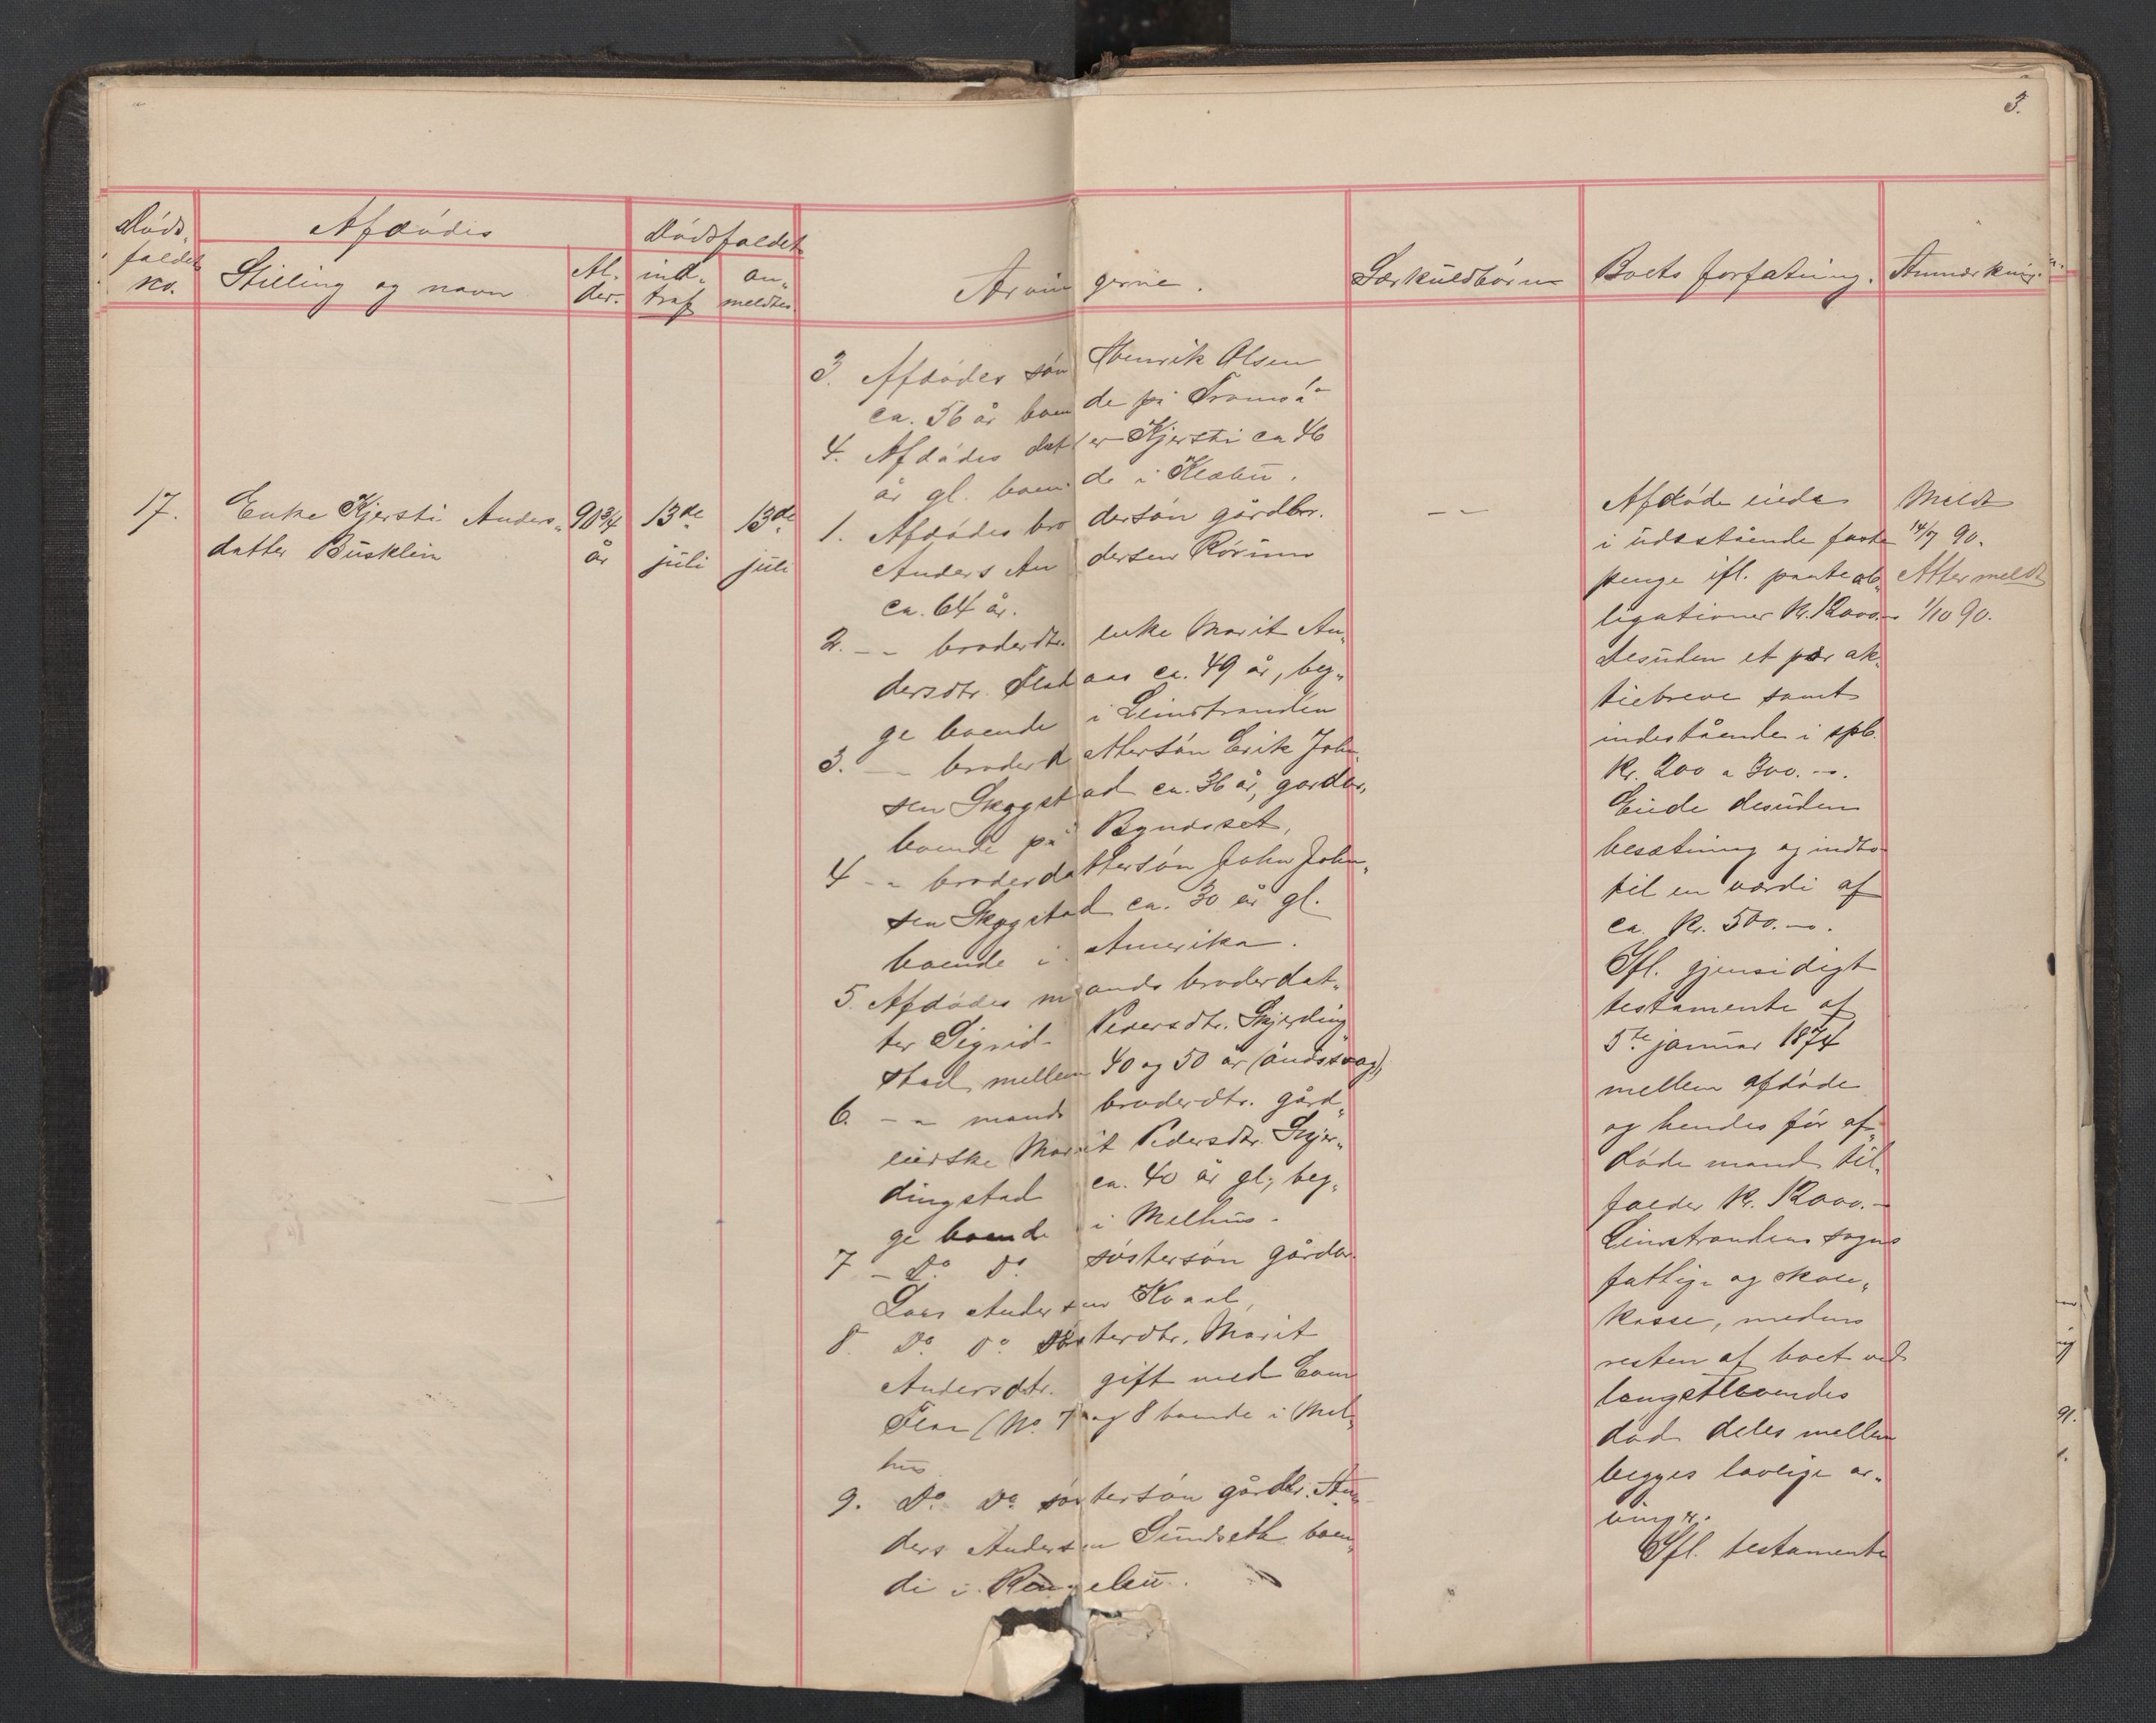 3.
Døds„
faldets
no.
Afdødes
Stilling og navn
Al„
der.
Dødsfaldet
ind„
traf
an„
meldtes.
Arvingerne.
Særkuldbørn
Boets forfatning.
Anmærkning.
3. Afdødes søn Henrik Olsen
ca. 56 år boende på Tromsø
4. Afdødes datter Kjersti ca 46
år gl. boende i Klæbu.
17.
Enke Kjersti Anders„
datter Busklin
90 3/4
år
13de
juli
13de
juli
1. Afdødes brodersøn gårdbr.
Anders Andersen Rørum
ca. 64 år.
2. -„- broderdtr. enke Marit An„
dersdtr. Flataas ca. 49 år, beg„
ge boende i Leinstranden
3. -„- broderdattersøn Erik John„
sen Skjøgstad ca. 36 år, gardbr.
boende på Bynesset,
4 -„- broderdattersøn John John„
sen Skjøgstad ca. 30 år gl.
boende i Amerika.
5. Afdødes mands broderdat„
ter Sigrid Pedersdtr. Skjerding„
stad mellem 40 og 50 år (åndssvag)
6. -„- mands broderdtr. gård„
eierske Marit Pedersdtr. Skjer„
dingstad ca. 40 år gl., beg„
ge boende i Melhus.
7 - Do. Do. søstersøn gårdbr.
Lars Andersen Kvaal,
8. Do. Do. søsterdtr. Marit
Andersdtr. gift med Even
Flaa (No. 7 og 8 boende i Mel„
hus
9. Do. Do. søstersøn gårdbr. An„
ders Andersen Sundseth boen„
de i Rengebu.
- -
Afdøde eiede
i udestående faste
penge ifl. panteob„
ligationer kr. 12000.-
desuden et par ak„
tiebreve samt
indestående i spb.
kr. 200 a 300.-.
Eiede desuden
besætning og indbo
til en værdi af
ca. kr. 500.-.
Ifl. gjensidigt
testamente af
5te januar 1874
mellem afdøde
og hendes før af„
døde mand til„
falder kr. 12000.-
Leinstrandens sogns
fattig- og skole„
kasse, medens
resten af boet ved
længstlevendes
død deles mellem
begges lovlige ar„
vinger.
Ifl. testamente
Meldt
14/7 90.
Atter meldt
1/10 90.